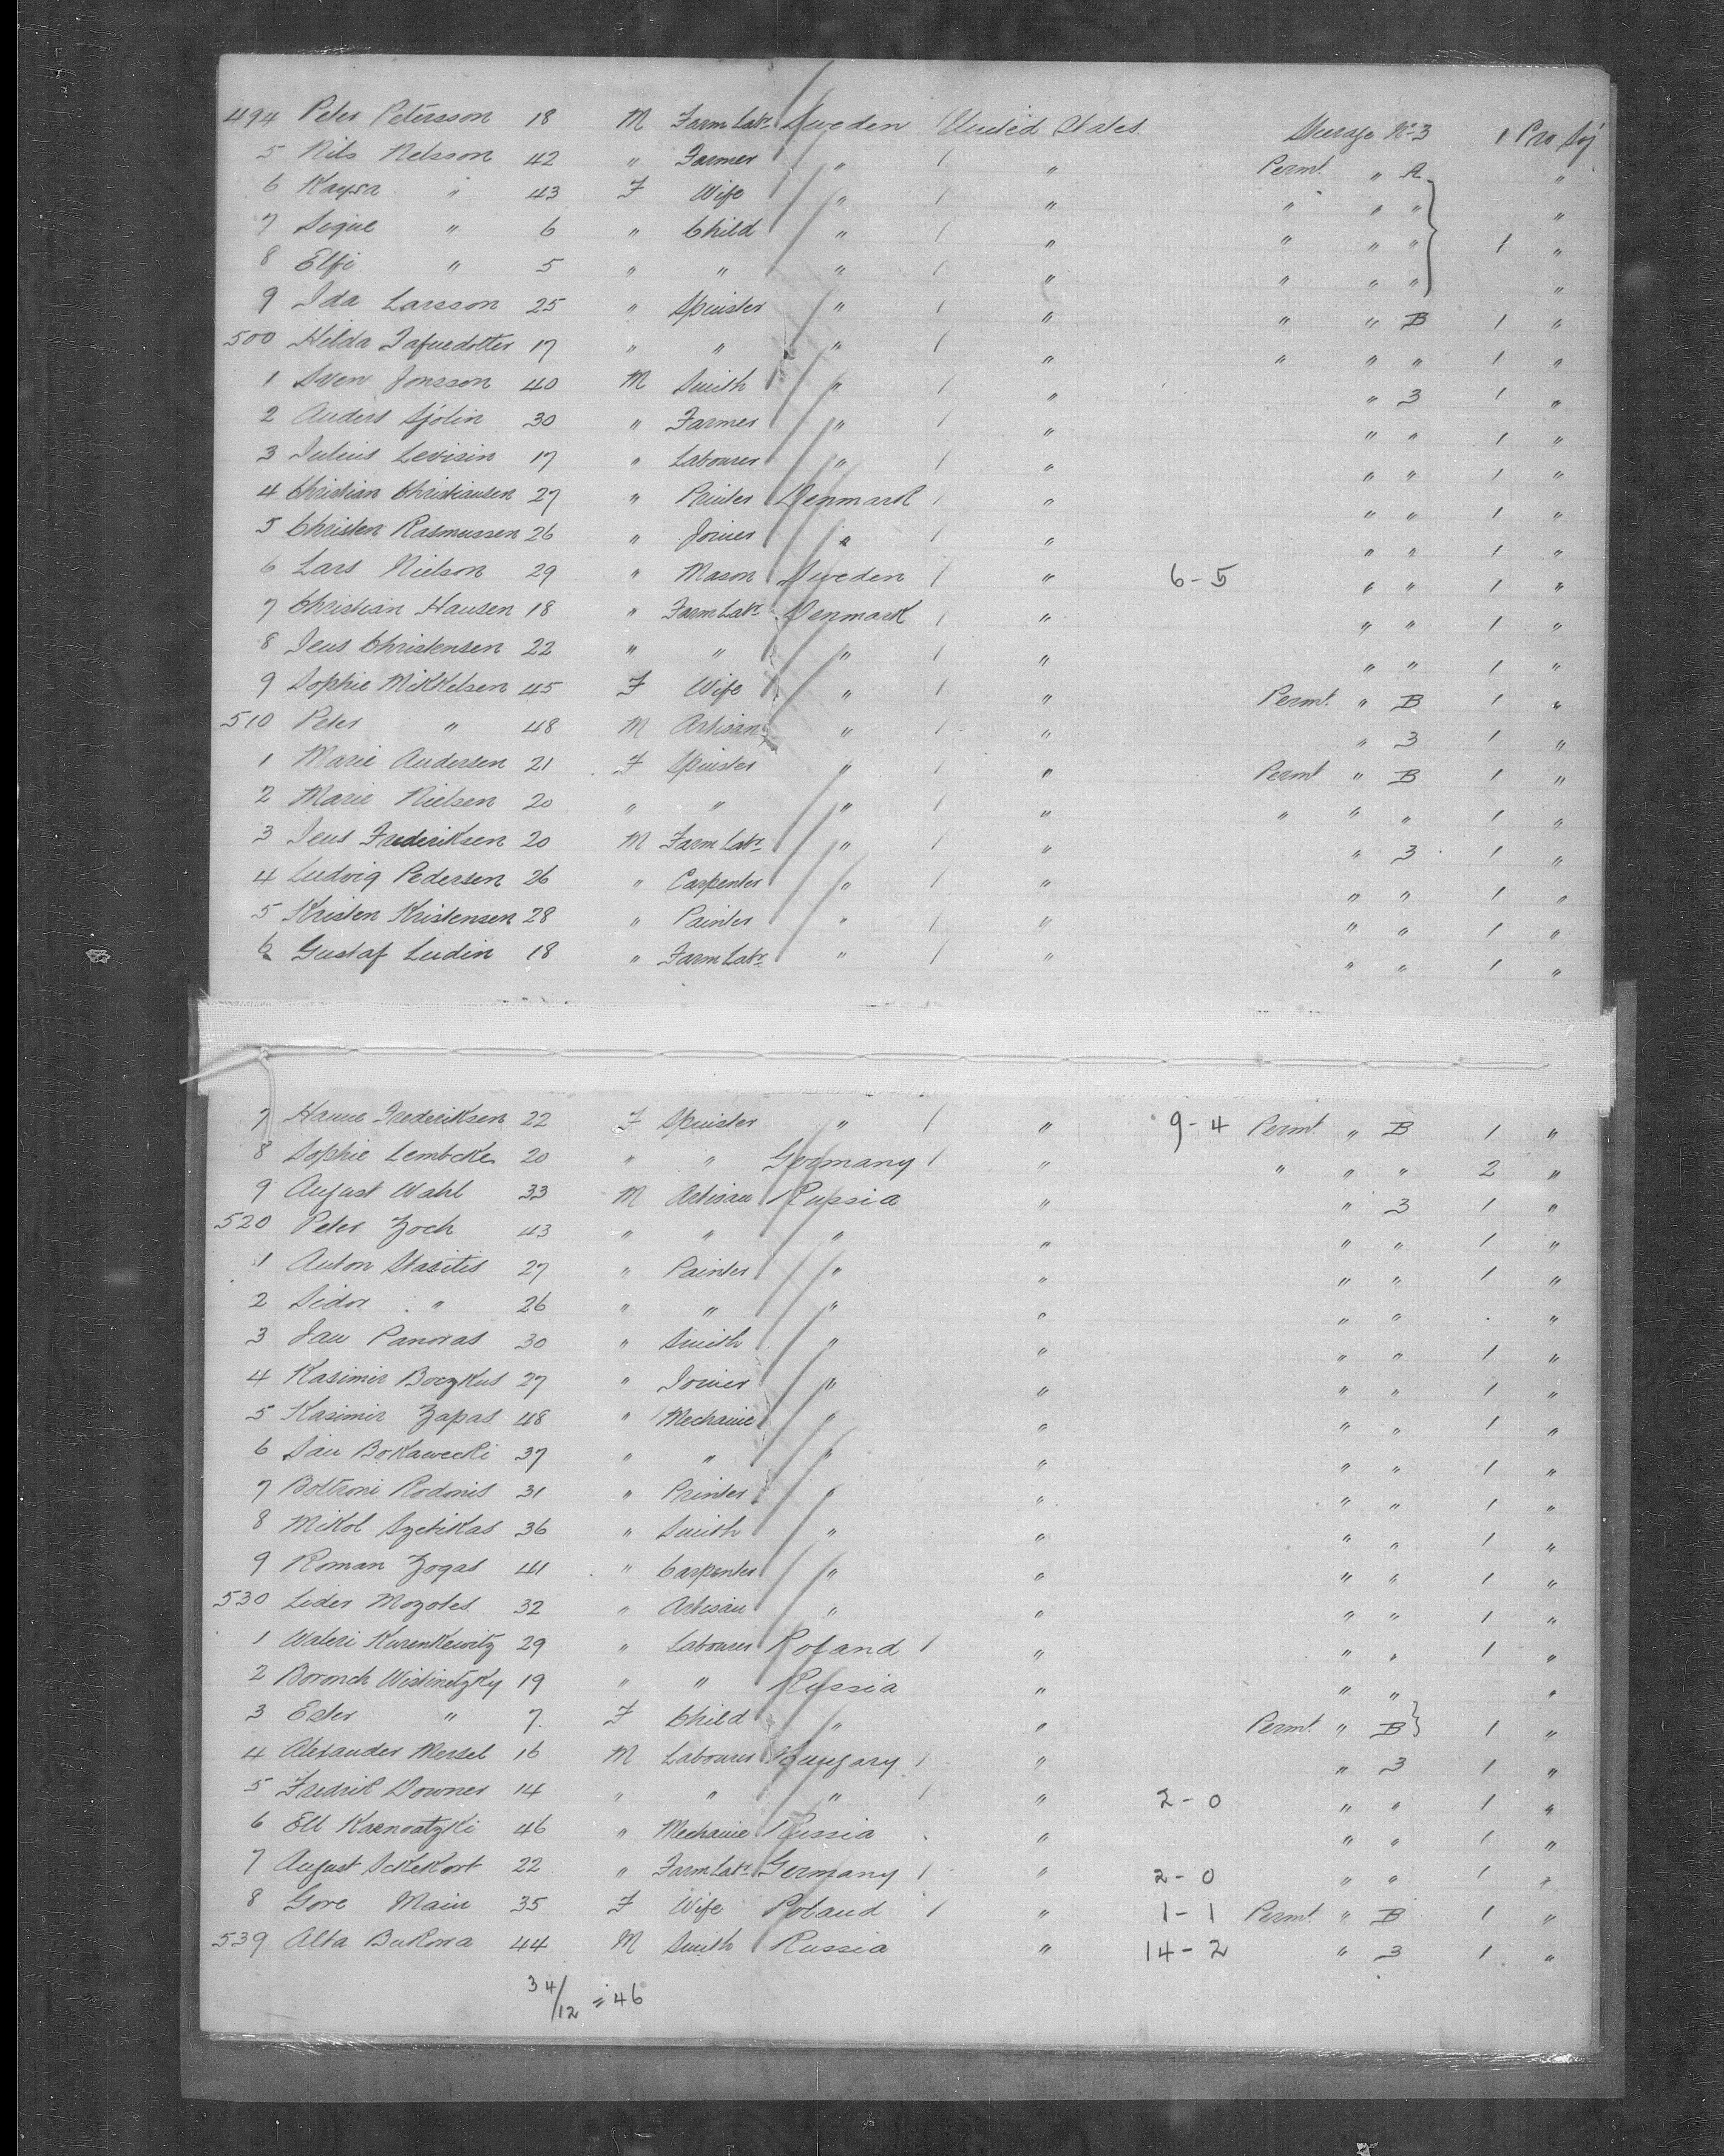 494 Peter Petersson 18 M Farm Labr Sweden 1 United States Steerage No 3 1 Pro Soj
5 Nils Nelsson 42 " Farmer " 1 " Permt. " A "
6 Kaysa " 43 F Wife " 1 " " " " "
7 Signe " 6 " Child " 1 " " " " 1 "
8 Elfi " 5 " " " 1 " " " " "
9 Ida Larsson 25 " Spinster " 1 " " " B 1 "
500 Hilda 17 " " " 1 " " " " 1 "
1 Sven Jonsson 40 M Smith " 1 " " 3 1 "
2 Anders Sjölin 30 " Farmer " 1 " " " 1 "
3 Julius Levisin 17 " Labourer " 1 " " " 1 "
4 Christian Christiansen 27 " Printer Denmark 1 " " " 1 "
5 Christen Rasmussen 26 " Joiner " 1 " " " 1 "
6 Lars Nielson 29 " Mason Sweden 1 " 6-5 " " 1 "
7 Christian Hansen 18 " Farm Labr Denmark 1 " " " 1 "
8 Jens Christensen 22 " " " 1 " " " 1 "
9 Sophie Mikkelsen 45 F Wife " 1 " Permt. " B 1 "
510 Peter " 48 M Artisan " 1 " " 3 1 "
1 Marie Andersen 21 F Spinster " 1 " Permt " B 1 "
2 Marie Nielsen 20 " " " 1 " " " " 1 "
3 Jens Frederiksen 20 M Farm Labr " 1 " " 3 1 "
4 Ludvig Pedersen 26 " Carpenter " 1 " " " 1 "
5 Kristen Kristensen 28 " Painter " 1 " " " 1 "
6 Gustaf Ludin 18 " Farm Labr " 1 " " " 1 "
7 Hanne Frederiksen 22 F Spinster " 1 " 9-4 Permt. " B 1 "
8 Sophie Lembcke 20 " " Germany 1 " " " " 2 "
9 August Wahl 33 M Artisan Russia " " 3 1 "
520 Peter Zoch 43 " " " " " " 1 "
1 Anton Stasitis 27 " Painter " " " " 1 "
2 Sidor " 26 " " " " " " "
3 Jan Panoras 30 " Smith " " " " 1 "
4 Kasimir Boczkus 27 " Joiner " " " " 1 "
5 Kasimir Zapas 48 " Mechanic " " " " 1 "
6 Jan Bokawecki 37 " " " " " " 1 "
7 Rodonis 31 " Printer " " " " 1 "
8 Mikol Szetikas 36 " Smith " " " " 1 "
9 Roman Zogas 41 " Carpenter " " " " 1 "
530 Lider Mozoles 32 " Artisan " " " " 1 "
1 Waleri Kurenkewitz 29 " Labourer Poland 1 " " " 1 "
2 Boronch Wistinetzky 19 " " Russia " " " "
3 Ester " 7 F Child " " Permt. " B 1 "
4 Alexander Mersel 16 M Labourer Hungary 1 " " 3 1 "
5 Fredrik Downer 14 " " " 1 " 2-0 " " 1 "
6 Karnoatzki 46 " Mechanic Russia " " " 1 "
7 August Sckekort 22 " Farm Labr Germany 1 " 2-0 " " 1 "
8 Gore Main 35 F Wife Poland 1 " 1-1 Permt. " B 1 "
539 Alta Bukowa 44 M Smith Russia " 14-2 " 3 1 "
34/12 = 46